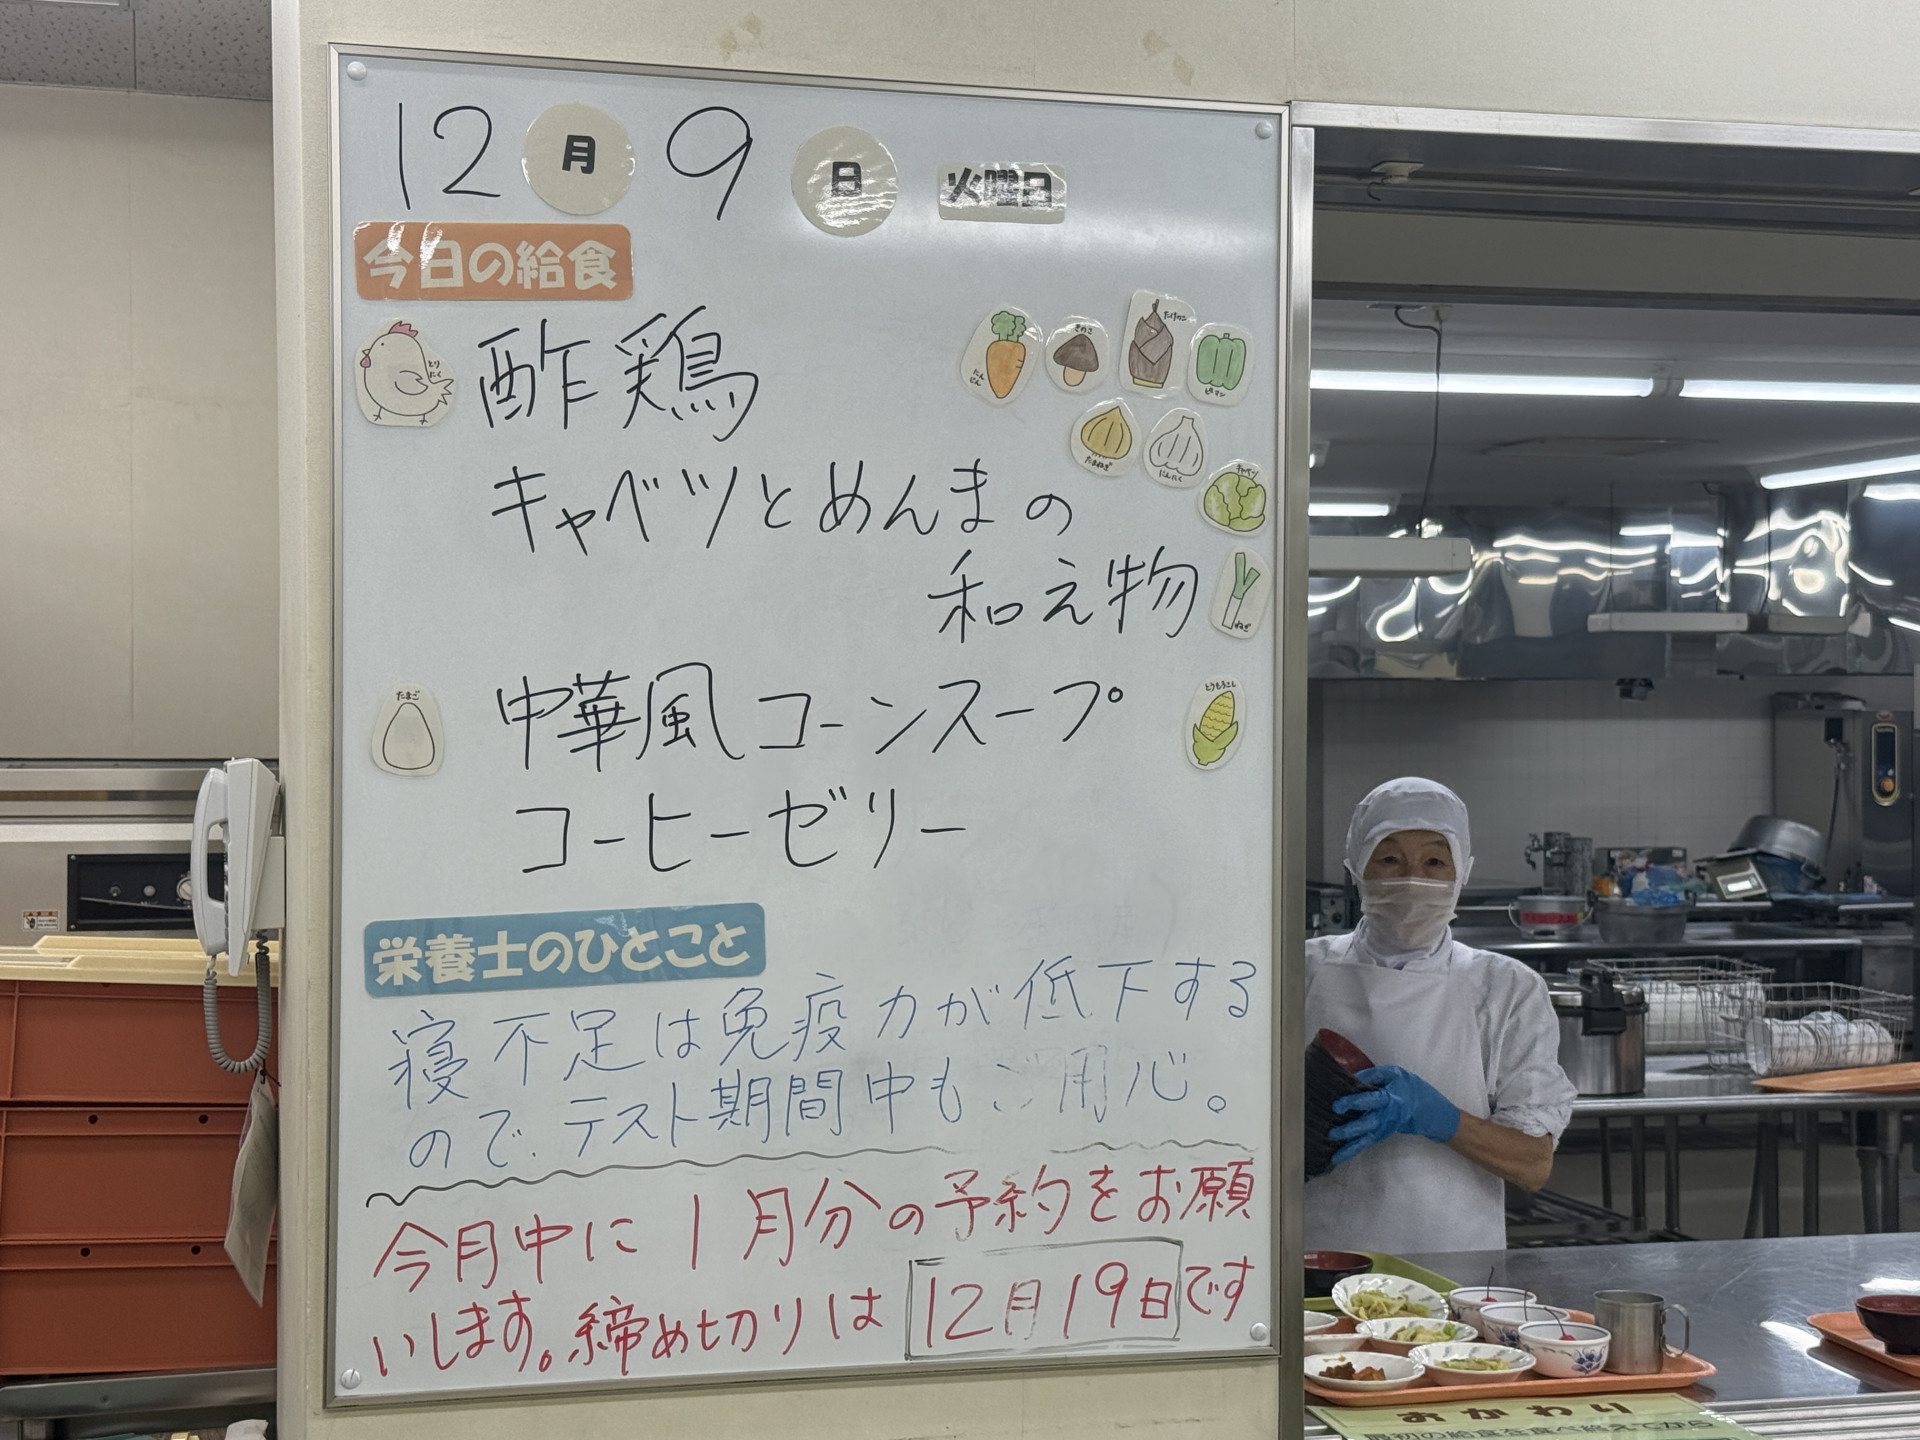 12月9日 火曜日
今日の給食
とりにく
酢鶏
にんじん
きのこ
たけのこ
ピーマン
たまねぎ
にんにく
キャベツ
キャベツとめんまの
和え物
ねぎ
たまご
中華風コーンスープ
とうもろこし
コーヒーゼリー
栄養士のひとこと
寝不足は免疫力が低下する
ので、テスト期間中もご用心。
今月中に1月分の予約をお願
いします。締め切りは12月19日です
おかわり
最初の給食を食べ終えてから